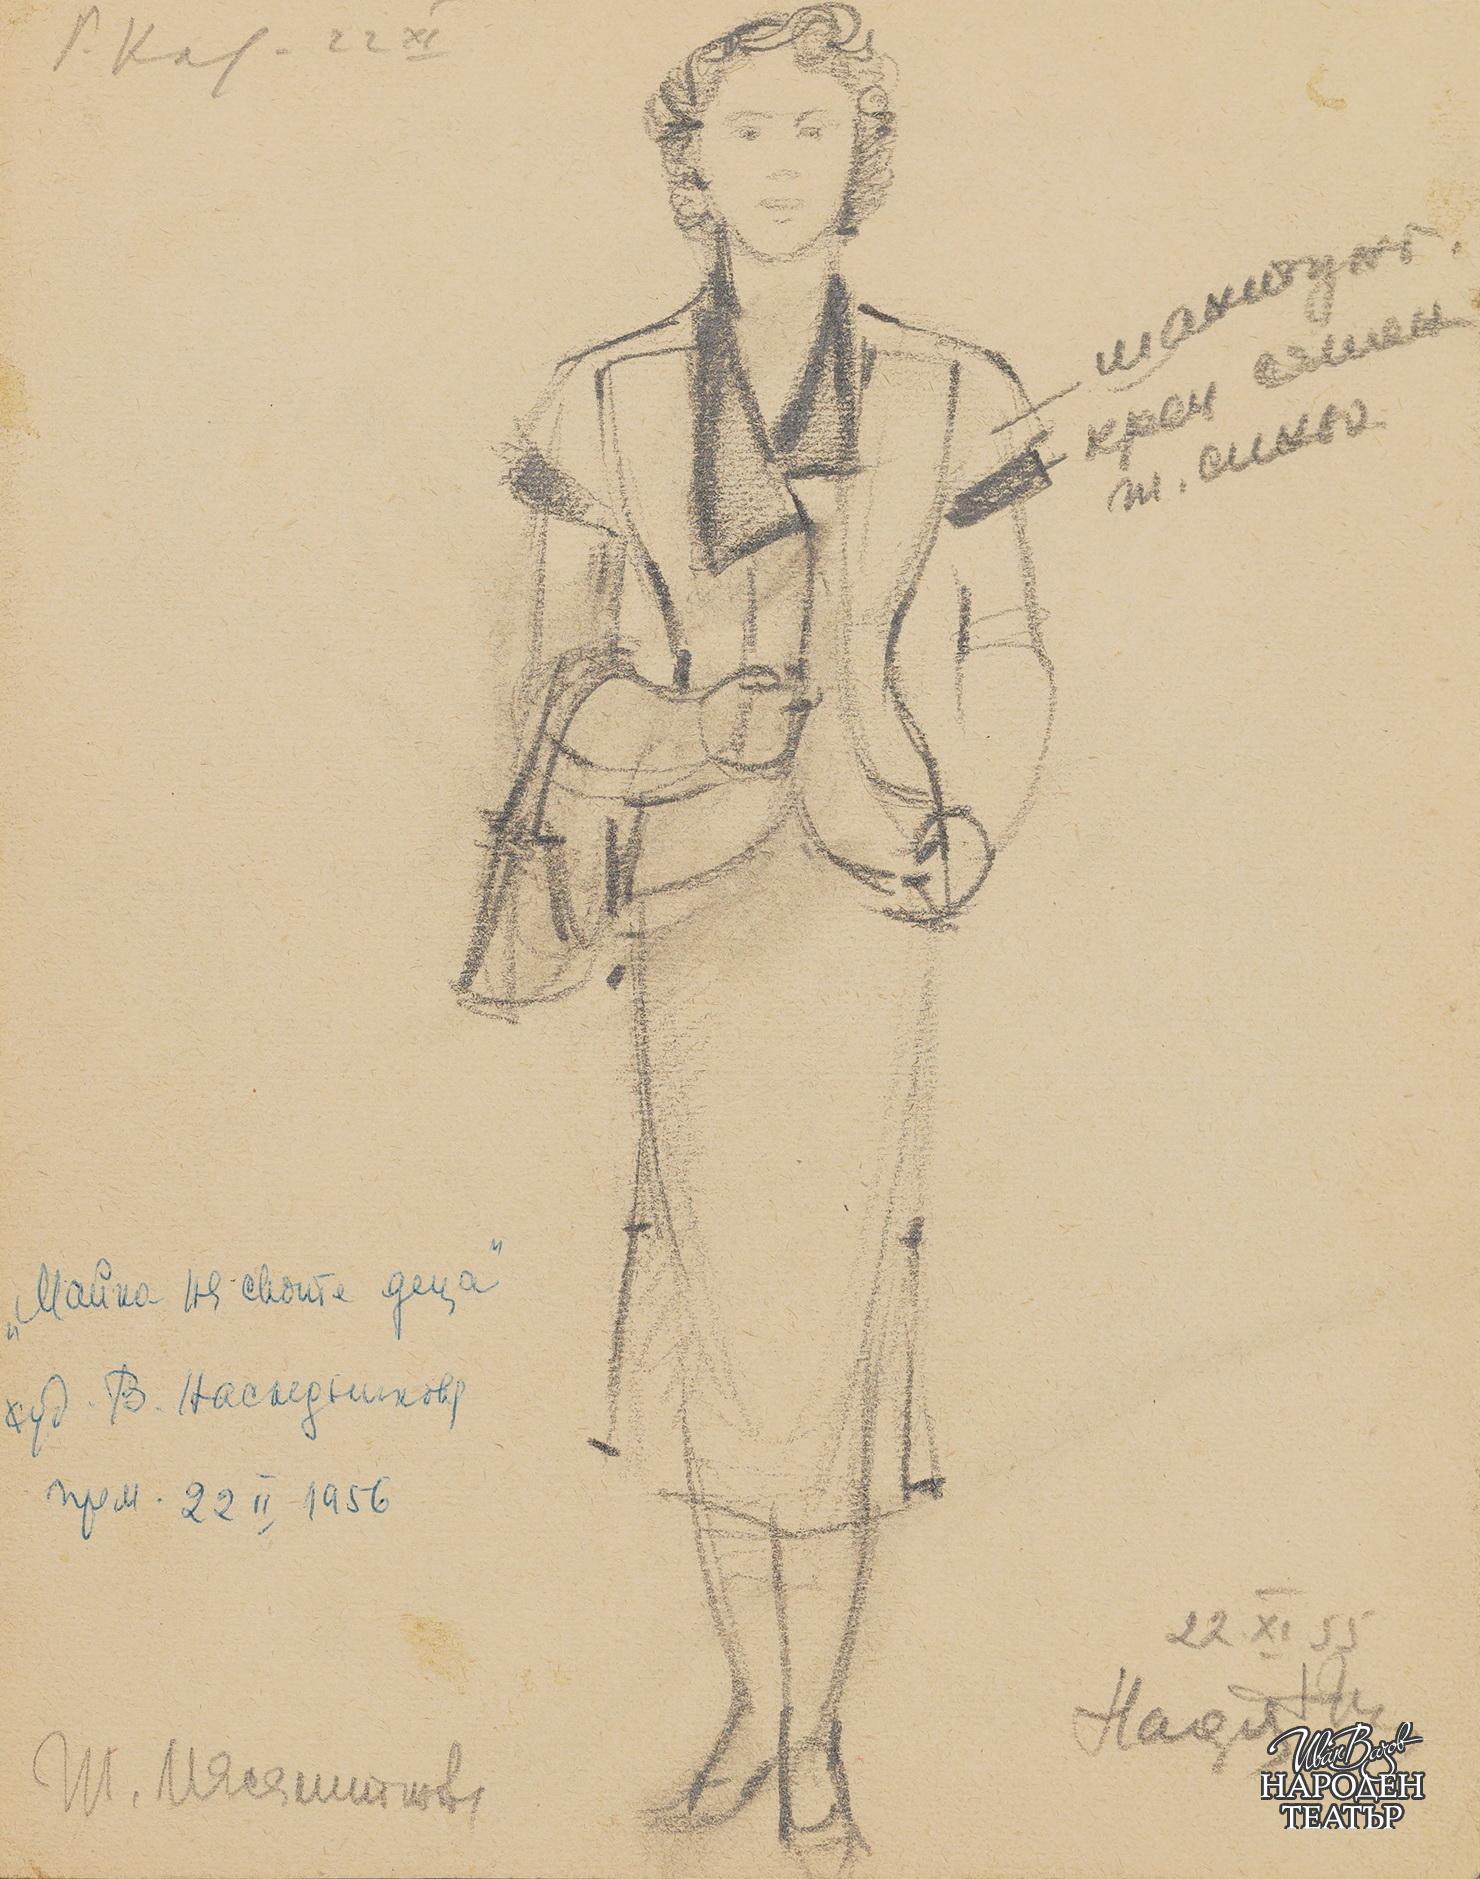 Г. Кар - 22 XI
шантунг.
креп сатен
т. синьо
„Майка на своите деца"
худ. В. Наследников
прем. 22 II 1956
22 XI 55
Надя
Т.
Иван Вазов
НАРОДЕН
ТЕАТЪР